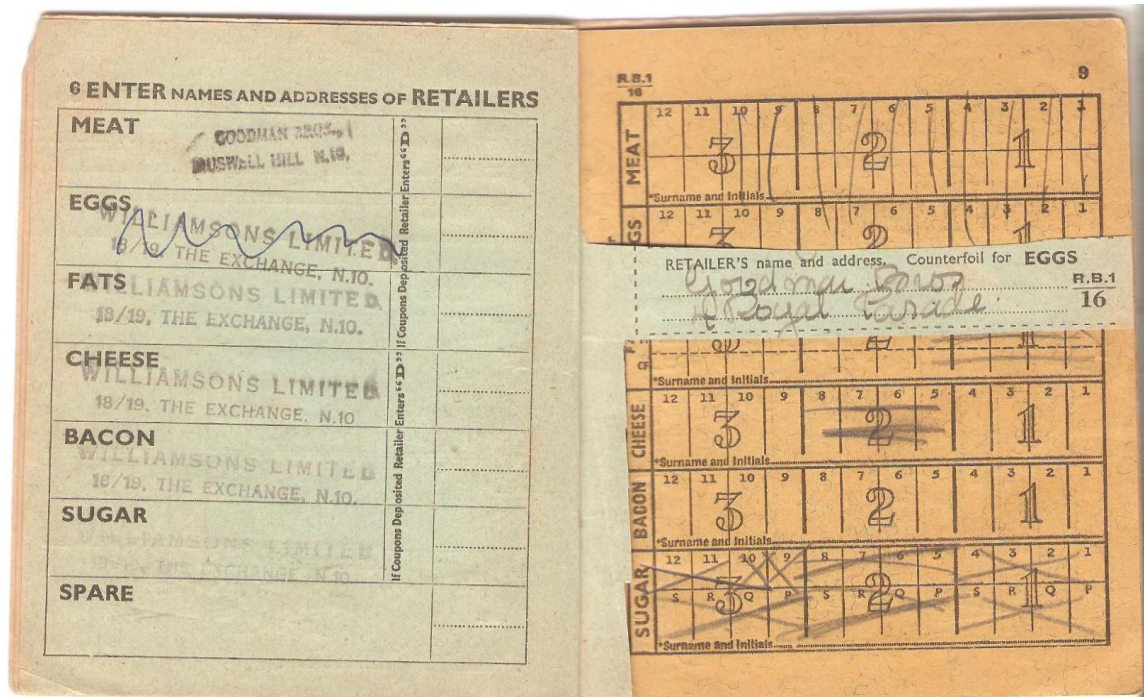 6 ENTER NAMES AND ADDRESSES OF RETAILERS
MEAT
GOODMAN BROS.,
MUSWELL HILL N.10.
EGGS
WILLIAMSONS LIMITED
18/19, THE EXCHANGE, N.10.
FATS
WILLIAMSONS LIMITED
18/19, THE EXCHANGE, N.10.
CHEESE
WILLIAMSONS LIMITED
18/19, THE EXCHANGE, N.10
BACON
WILLIAMSONS LIMITED
18/19, THE EXCHANGE, N.10.
SUGAR
WILLIAMSONS LIMITED
18/19, THE EXCHANGE, N.10
SPARE
If Coupons Deposited Retailer Enters "D"
If Coupons Deposited Retailer Enters "D"
R.B.1
16
9
MEAT
12 11 10 9 8 7 6 5 4 3 2 1
3 2 1
*Surname and Initials
GS
12 11 10 9 8 7 6 5 4 3 2 1
3 2 1
RETAILER'S name and address. Counterfoil for EGGS
Goodman Bros
Royal Parade
R.B.1
16
*Surname and Initials
CHEESE
12 11 10 9 8 7 6 5 4 3 2 1
3 2 1
*Surname and Initials
BACON
12 11 10 9 8 7 6 5 4 3 2 1
3 2 1
*Surname and Initials
SUGAR
12 11 10 9 8 7 6 5 4 3 2 1
3 2 1
S R Q P S R Q P S R Q P
*Surname and Initials